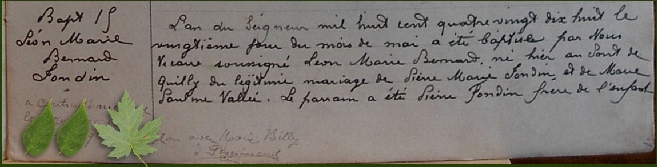 Bapt 15
Léon Marie
Bernard
Jondin
L'an du Seigneur mil huit cent quatre vingt dix huit le
vingtième jour du mois de mai a été baptisé par Nous
Vicaire soussigné Léon Marie Bernard, né hier au Pont de
Quilly du légitime mariage de Pière Marie Jondin et de Marie
Pauline Vallée. Le parrain a été Pière Jondin frère de l'enfant
a contracté
avec Marie Billy